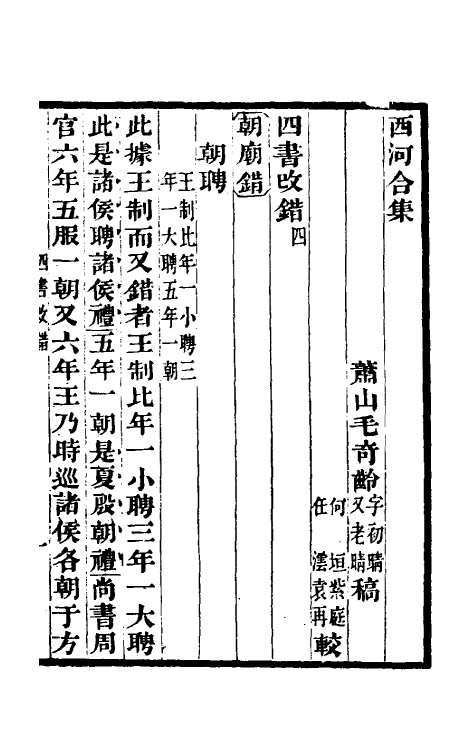 西河合集
蕭山毛奇齡字初晴又老晴稿
何垣紫庭
任澐袁再較
四書改錯四
朝廟錯
朝聘
王制比年一小聘三
年一大聘五年一朝
此據王制而又錯者王制比年一小聘三年一大聘
此是諸侯聘諸侯禮五年一朝是夏殷朝禮尚書周
官六年五服一朝又六年王乃時巡諸侯各朝于方
四書改錯